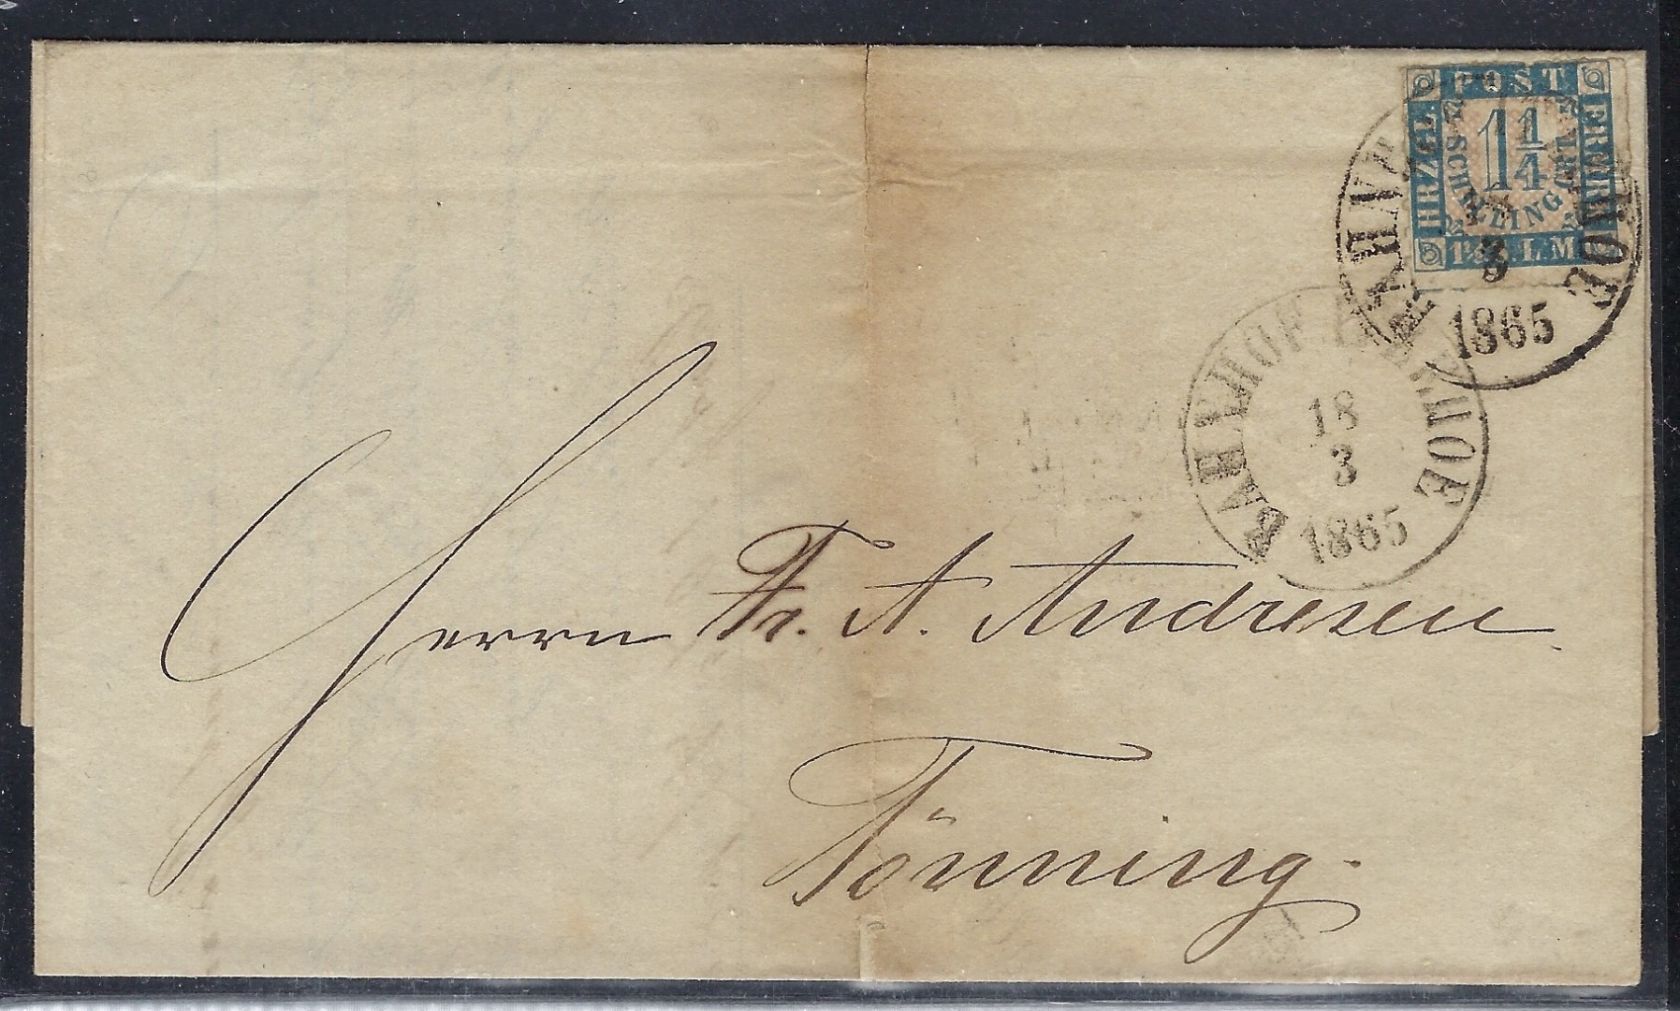 POST
HRZGL
FRMRK
1¼
SCHILLING
1⅓ S.L.M.
3
1865
BAHNHOF ITZEHOE
18
3
1865
Herrn Fr. A. Andresen
Tönning.